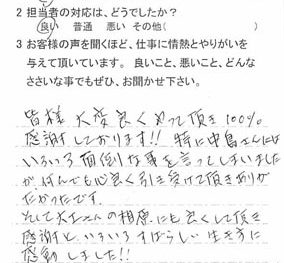 2 担当者の対応は、どうでしたか？
良い 普通 悪い その他(
3 お客様の声を聞くほど、仕事に情熱とやりがいを
与えて頂いています。 良いこと、悪いこと、どんな
ささいな事でもぜひ、お聞かせ下さい。
皆様 大変良くやって頂き100%
感謝しております!! 特に中島さんには
いろいろ面倒な事を言ってしまいました
が、何んでも心良く引き受けて頂きありが
たかったです。
そして大工さんの相原にも良くして頂き
感謝といろいろすばらしい生き方に
感動しました!!